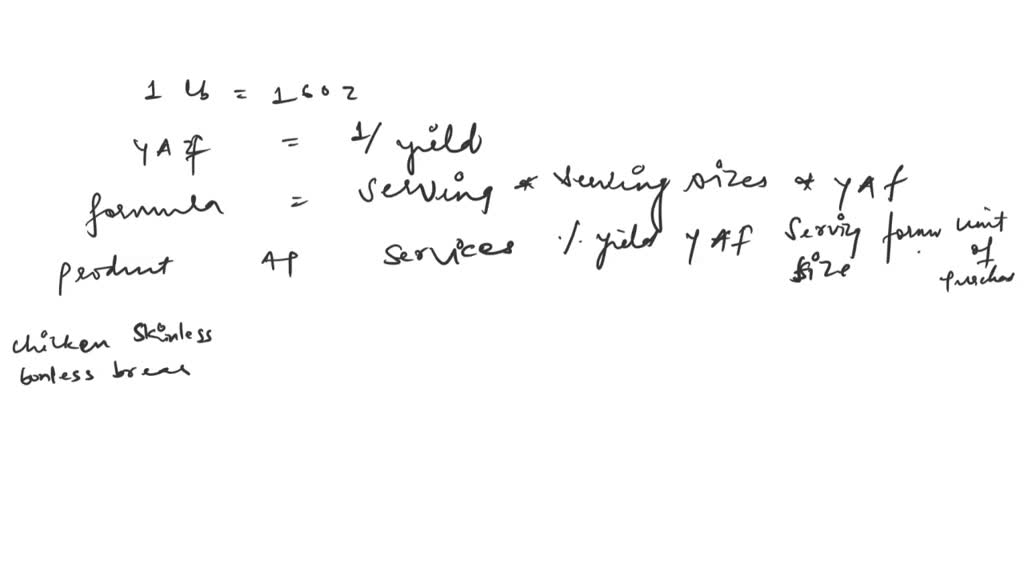 1 lb = 16oz
YAF = 1/ yield
formula = serving * serving sizes * YAF
product AP services % yield YAF serving size form unit of purchas
chicken skinless
bonless breas